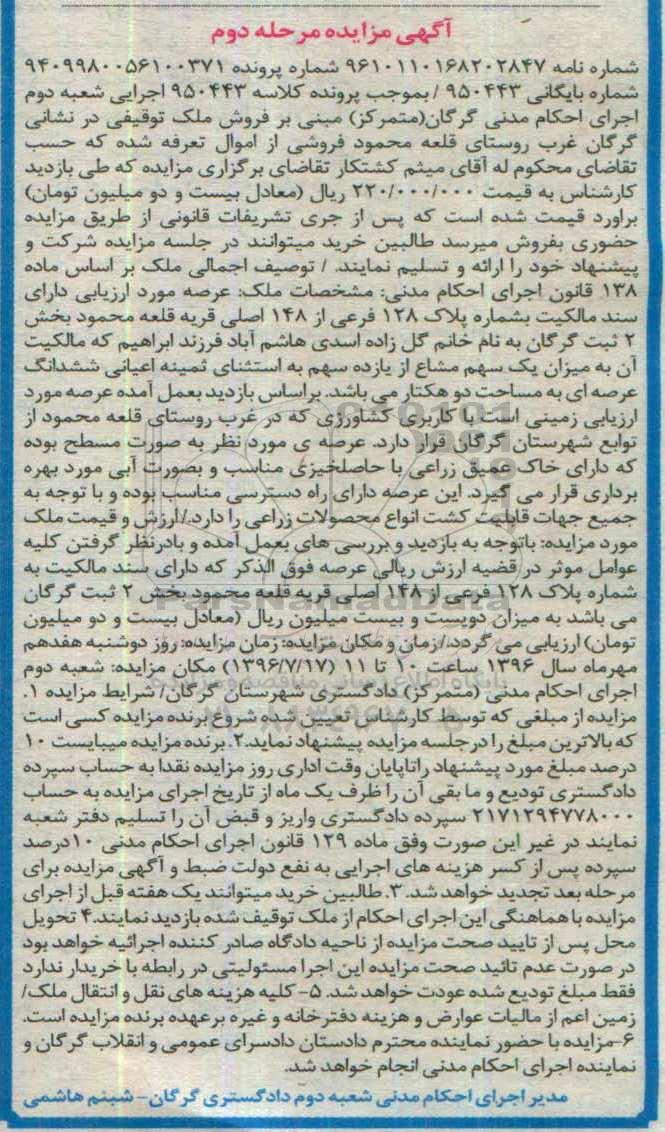 آگهی مزایده مرحله دوم
شماره نامه ۹۶۱۰۱۱۰۱۶۸۲۰۲۸۴۷ شماره پرونده ۹۴۰۹۹۸۰۰۵۶۱۰۰۳۷۱
شماره بایگانی ۹۵۰۴۴۳ / بموجب پرونده کلاسه ۹۵۰۴۴۳ اجرایی شعبه دوم
اجرای احکام مدنی گرگان(متمرکز) مبنی بر فروش ملک توقیفی در نشانی
گرگان غرب روستای قلعه محمود فروشی از اموال تعرفه شده که حسب
تقاضای محکوم له آقای میثم کشتکار تقاضای برگزاری مزایده که طی بازدید
کارشناس به قیمت ۲۲۰/۰۰۰/۰۰۰ ریال (معادل بیست و دو میلیون تومان)
براورد قیمت شده است که پس از جری تشریفات قانونی از طریق مزایده
حضوری بفروش میرسد طالبین خرید میتوانند در جلسه مزایده شرکت و
پیشنهاد خود را ارائه و تسلیم نمایند. / توصیف اجمالی ملک بر اساس ماده
۱۳۸ قانون اجرای احکام مدنی: مشخصات ملک: عرصه مورد ارزیابی دارای
سند مالکیت بشماره پلاک ۱۲۸ فرعی از ۱۴۸ اصلی قریه قلعه محمود بخش
۲ ثبت گرگان به نام خانم گل زاده اسدی هاشم آباد فرزند ابراهیم که مالکیت
آن به میزان یک سهم مشاع از یازده سهم به استثنای ثمینه اعیانی ششدانگ
عرصه ای به مساحت دو هکتار می باشد. براساس بازدید بعمل آمده عرصه مورد
ارزیابی زمینی است با کاربری کشاورزی که در غرب روستای قلعه محمود از
توابع شهرستان گرگان قرار دارد. عرصه ی مورد نظر به صورت مسطح بوده
که دارای خاک عمیق زراعی با حاصلخیزی مناسب و بصورت آبی مورد بهره
برداری قرار می گیرد. این عرصه دارای راه دسترسی مناسب بوده و با توجه به
جمیع جهات قابلیت کشت انواع محصولات زراعی را دارد./ ارزش و قیمت ملک
مورد مزایده: باتوجه به بازدید و بررسی های بعمل آمده و بادرنظر گرفتن کلیه
عوامل موثر در قضیه ارزش ریالی عرصه فوق الذکر که دارای سند مالکیت به
شماره پلاک ۱۲۸ فرعی از ۱۴۸ اصلی قریه قلعه محمود بخش ۲ ثبت گرگان
می باشد به میزان دویست و بیست میلیون ریال (معادل بیست و دو میلیون
تومان) ارزیابی می گردد./ زمان و مکان مزایده: زمان مزایده: روز دوشنبه هفدهم
مهرماه سال ۱۳۹۶ ساعت ۱۰ تا ۱۱ (۱۳۹۶/۷/۱۷) مکان مزایده: شعبه دوم
اجرای احکام مدنی (متمرکز) دادگستری شهرستان گرگان/ شرایط مزایده ۱.
مزایده از مبلغی که توسط کارشناس تعیین شده شروع برنده مزایده کسی است
که بالاترین مبلغ را درجلسه مزایده پیشنهاد نماید.۲. برنده مزایده میبایست ۱۰
درصد مبلغ مورد پیشنهاد راتاپایان وقت اداری روز مزایده نقدا به حساب سپرده
دادگستری تودیع و ما بقی آن را ظرف یک ماه از تاریخ اجرای مزایده به حساب
۲۱۷۱۲۹۴۷۷۸۰۰۰ سپرده دادگستری واریز و قبض آن را تسلیم دفتر شعبه
نمایند در غیر این صورت وفق ماده ۱۲۹ قانون اجرای احکام مدنی ۱۰درصد
سپرده پس از کسر هزینه های اجرایی به نفع دولت ضبط و آگهی مزایده برای
مرحله بعد تجدید خواهد شد. ۳. طالبین خرید میتوانند یک هفته قبل از اجرای
مزایده با هماهنگی این اجرای احکام از ملک توقیف شده بازدید نمایند.۴ تحویل
محل پس از تایید صحت مزایده از ناحیه دادگاه صادر کننده اجرائیه خواهد بود
در صورت عدم تائید صحت مزایده این اجرا مسئولیتی در رابطه با خریدار ندارد
فقط مبلغ تودیع شده عودت خواهد شد. ۵- کلیه هزینه های نقل و انتقال ملک/
زمین اعم از مالیات عوارض و هزینه دفترخانه و غیره برعهده برنده مزایده است.
۶-مزایده با حضور نماینده محترم دادستان دادسرای عمومی و انقلاب گرگان و
نماینده اجرای احکام مدنی انجام خواهد شد.
مدیر اجرای احکام مدنی شعبه دوم دادگستری گرگان- شبنم هاشمی